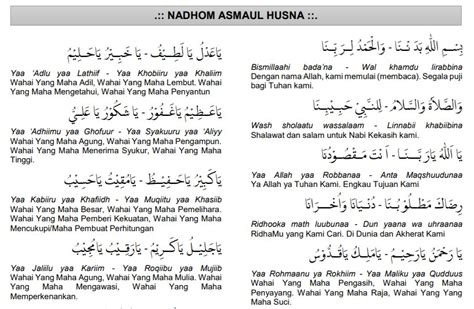 .:: NADHOM ASMAUL HUSNA ::.
بِسْمِ اللّٰهِ بَدَنْنَا - وَالْحَمْدُ لِرَبِّنَا
Bismillaahi bada'na - Wal khamdu lirabbina
Dengan nama Allah, kami memulai (membaca). Segala puji
bagi Tuhan kami.
وَالصَّلَاةُ وَالسَّلَامْ - لِلنَّبِيِّ حَبِيْبِنَا
Wash sholaatu wassalaam - Linnabii khabiibina
Shalawat dan salam untuk Nabi Kekasih kami.
يَا اَللّٰهُ يَارَبَّنَا - اَنْتَ مَقْصُوْدُنَا
Yaa Allah yaa Robbanaa - Anta Maqshuudunaa
Ya Allah ya Tuhan Kami. Engkau Tujuan Kami
رِضَاكَ مَطْلُوْبُنَا - دُنْيَانَا وَاُخْرَانَا
Ridhooka math luubunaa - Dun yaana wa uhraanaa
RidhaMu yang Kami Cari. Di Dunia dan Akherat Kami
يَارَحْمٰنُ يَارَحِيْمُ - يَامَلِكُ يَاقُدُّوْسُ
Yaa Rohmaanu ya Rokhiim - Yaa Maliku yaa Qudduus
Wahai Yang Maha Pengasih, Wahai Yang Maha
Penyayang. Wahai Yang Maha Raja, Wahai Yang Yang
Maha Suci.
يَاعَدْلُ يَا لَطِيْفُ - يَا خَبِيْرُ يَاحَلِيْمُ
Yaa 'Adlu yaa Lathiif - Yaa Khobiiru yaa Khaliim
Wahai Yang Maha Adil, Wahai Yang Maha Lembut. Wahai
Yang Maha Mengetahui, Wahai Yang Maha Penyantun
يَاعَظِيْمُ يَاغَفُوْرُ - يَا شَكُوْرُ يَا عَلِيُّ
Yaa 'Adhiimu yaa Ghofuur - Yaa Syakuuru yaa 'Aliyy
Wahai Yang Maha Agung, Wahai Yang Maha Pengampun.
Wahai Yang Maha Menerima Syukur, Wahai Yang Maha
Tinggi.
يَاكَبِيْرُ يَاحَفِيْظُ - يَامُقِيْتُ يَاحَسِيْبُ
Yaa Kabiiru yaa Khafiidh - Yaa Muqiitu yaa Khasiib
Wahai Yang Maha Besar, Wahai Yang Maha Pemelihara.
Wahai Yang Maha Pemberi Kekuatan, Wahai Yang Maha
Mencukupi/Maha Pembuat Perhitungan
يَاجَلِيْلُ يَاكَرِيْمُ - يَارَقِيْبُ يَامُجِيْبُ
Yaa Jaliilu yaa Kariim - Yaa Roqiibu yaa Mujiib
Wahai Yang Maha Agung, Wahai Yang Maha Mulia. Wahai
Yang Maha Mengawasi, Wahai Yang Maha
Memperkenankan.